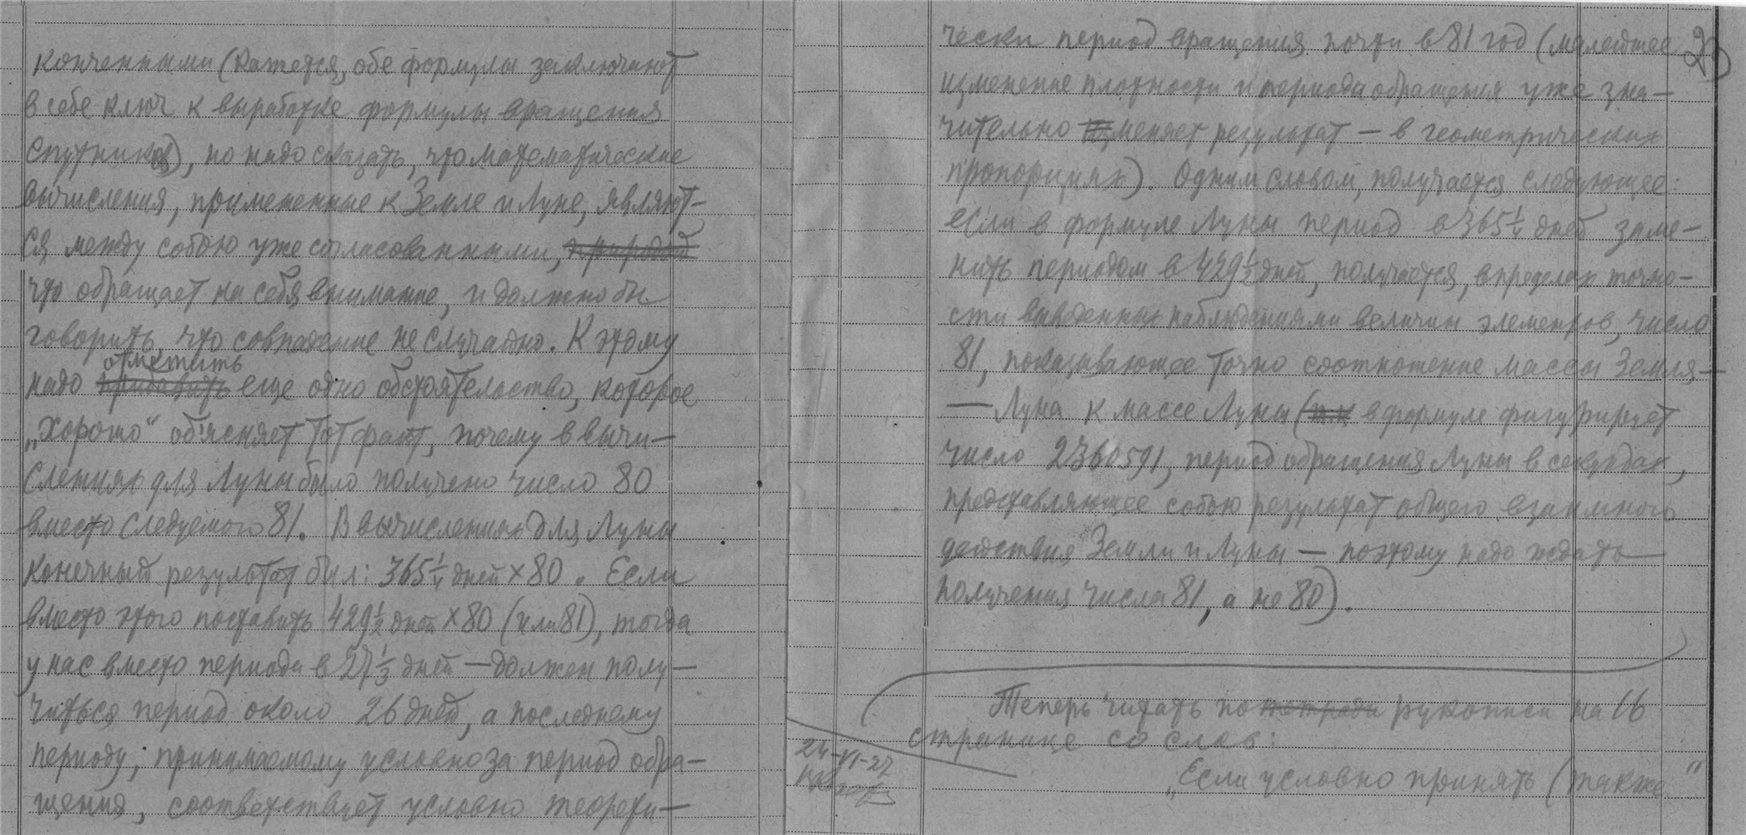 конченными (кажется, обе формулы заключают
в себе ключ к выработке формулы вращения
спутников), но надо сказать, что математические
вычисления, примененные к Земле и Луне, являют-
ся между собою уже согласованными, природой
что обращает на себя внимание, и должно бы
говорить, что совпадение не случайно. К этому
отметить
надо прибавить еще одно обстоятельство, которое
„хорошо“ об'ясняет тот факт, почему в вычи-
слениях для Луны было получено число 80
вместо следуемого 81. В вычислениях для Луны
конечный результат был: 365¼ дней × 80. Если
вместо этого поставить 429½ дней × 80 (или 81), тогда
у нас вместо периода в 27⅓ дней — должен полу-
читься период около 26 дней, а последнему
периоду, принимаемому условно за период обра-
щения, соответствует условно теорети-
чески период вращения почти в 81 год (малейшее
изменение плотности и периода обращения уже зна-
чительно меняет результат — в геометрических
пропорциях). Одним словом, получается следующее:
если в формуле Луны период в 365¼ дней заме-
нить периодом в 429½ дней, получается, в пределах точно-
сти выведенных наблюдениями величин элементов, число
81, показывающее точно соотношение массы Земля —
— Луна к массе Луны (т.к. в формуле фигурирует
число 2360591, период обращения Луны в секундах,
представляющее собою результат общего взаимного
действия Земли и Луны — поэтому надо ждать
получения числа 81, а не 80).
Теперь читать по тетради рукописи на 16
странице со слов:
„Если условно принять (также“
24-VI-27